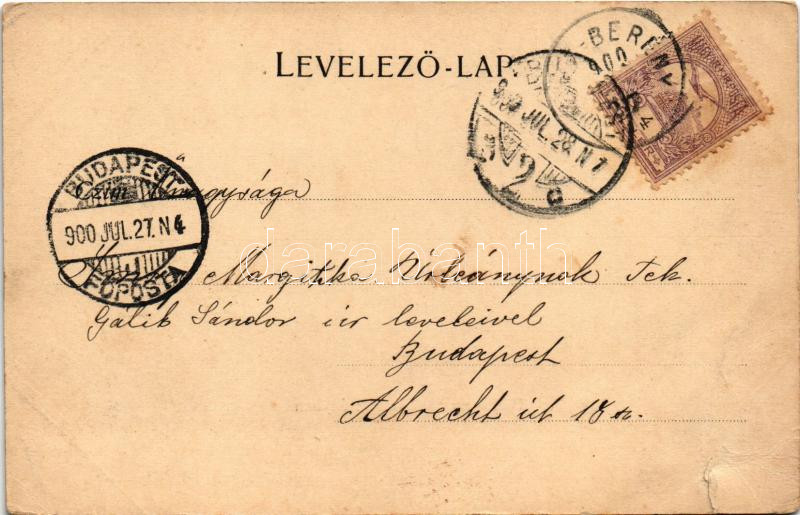 LEVELEZŐ-LAP
-BERÉNY
900
900 JUL. 28. N 7
BUDAPEST
900 JUL. 27. N 4
FŐPOSTA
Ő Nagysága
Margitka Úrleánynak Tek.
Galik Sándor úr leveleivel
Budapest
Albrecht út 18 sz.
darabanth